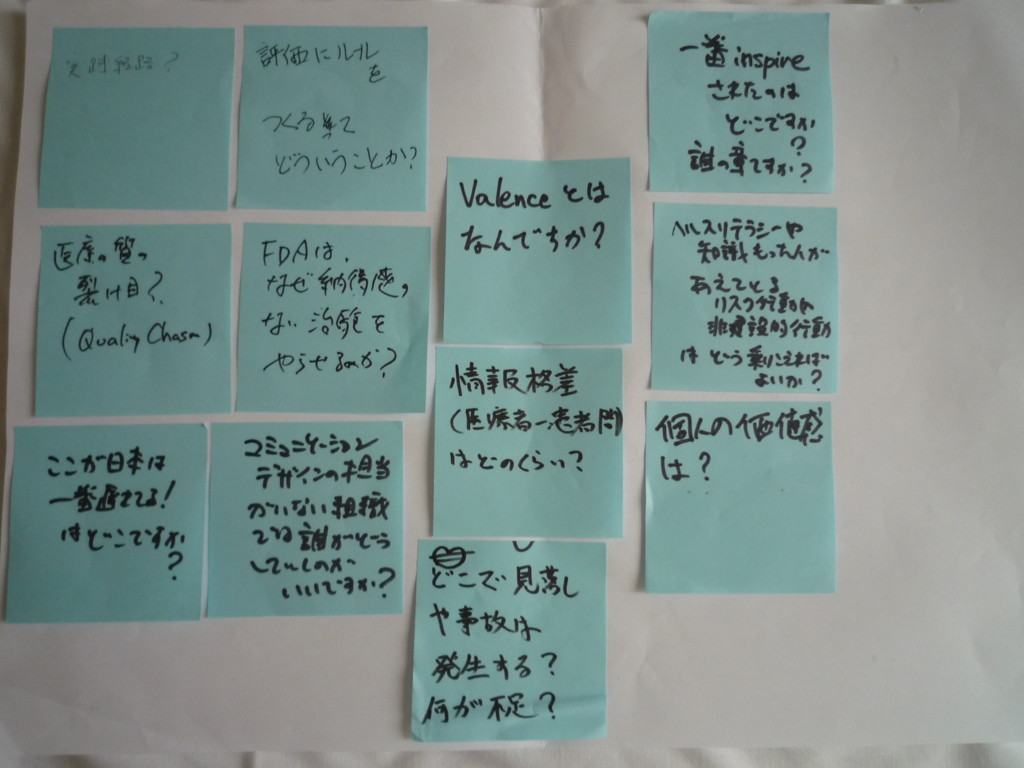 評価にルール
を
つくる事て
どういうことか?
医療の質の
裂け目?
(Quality Chasm)
FDAは、
なぜ納得感の
ない治験を
やらせるのか?
ここが日本は
一番遅れてる!
はどこですか
?
コミュニケーション
デザインの担当
がいない組織
では誰がどう
していくのが
いいですか?
Valenceとは
なんですか?
情報格差
(医療者ー患者間)
はどのくらい?
どこで見落し
や事故は
発生する?
何が不足?
一番inspire
されたのは
どこですか
?
誰の事ですか?
ヘルスリテラシーや
知識もった人が
あえてとる
リスク行動や
非建設的行動
は どう乗りこえれば
よいか?
個人の価値感
は?